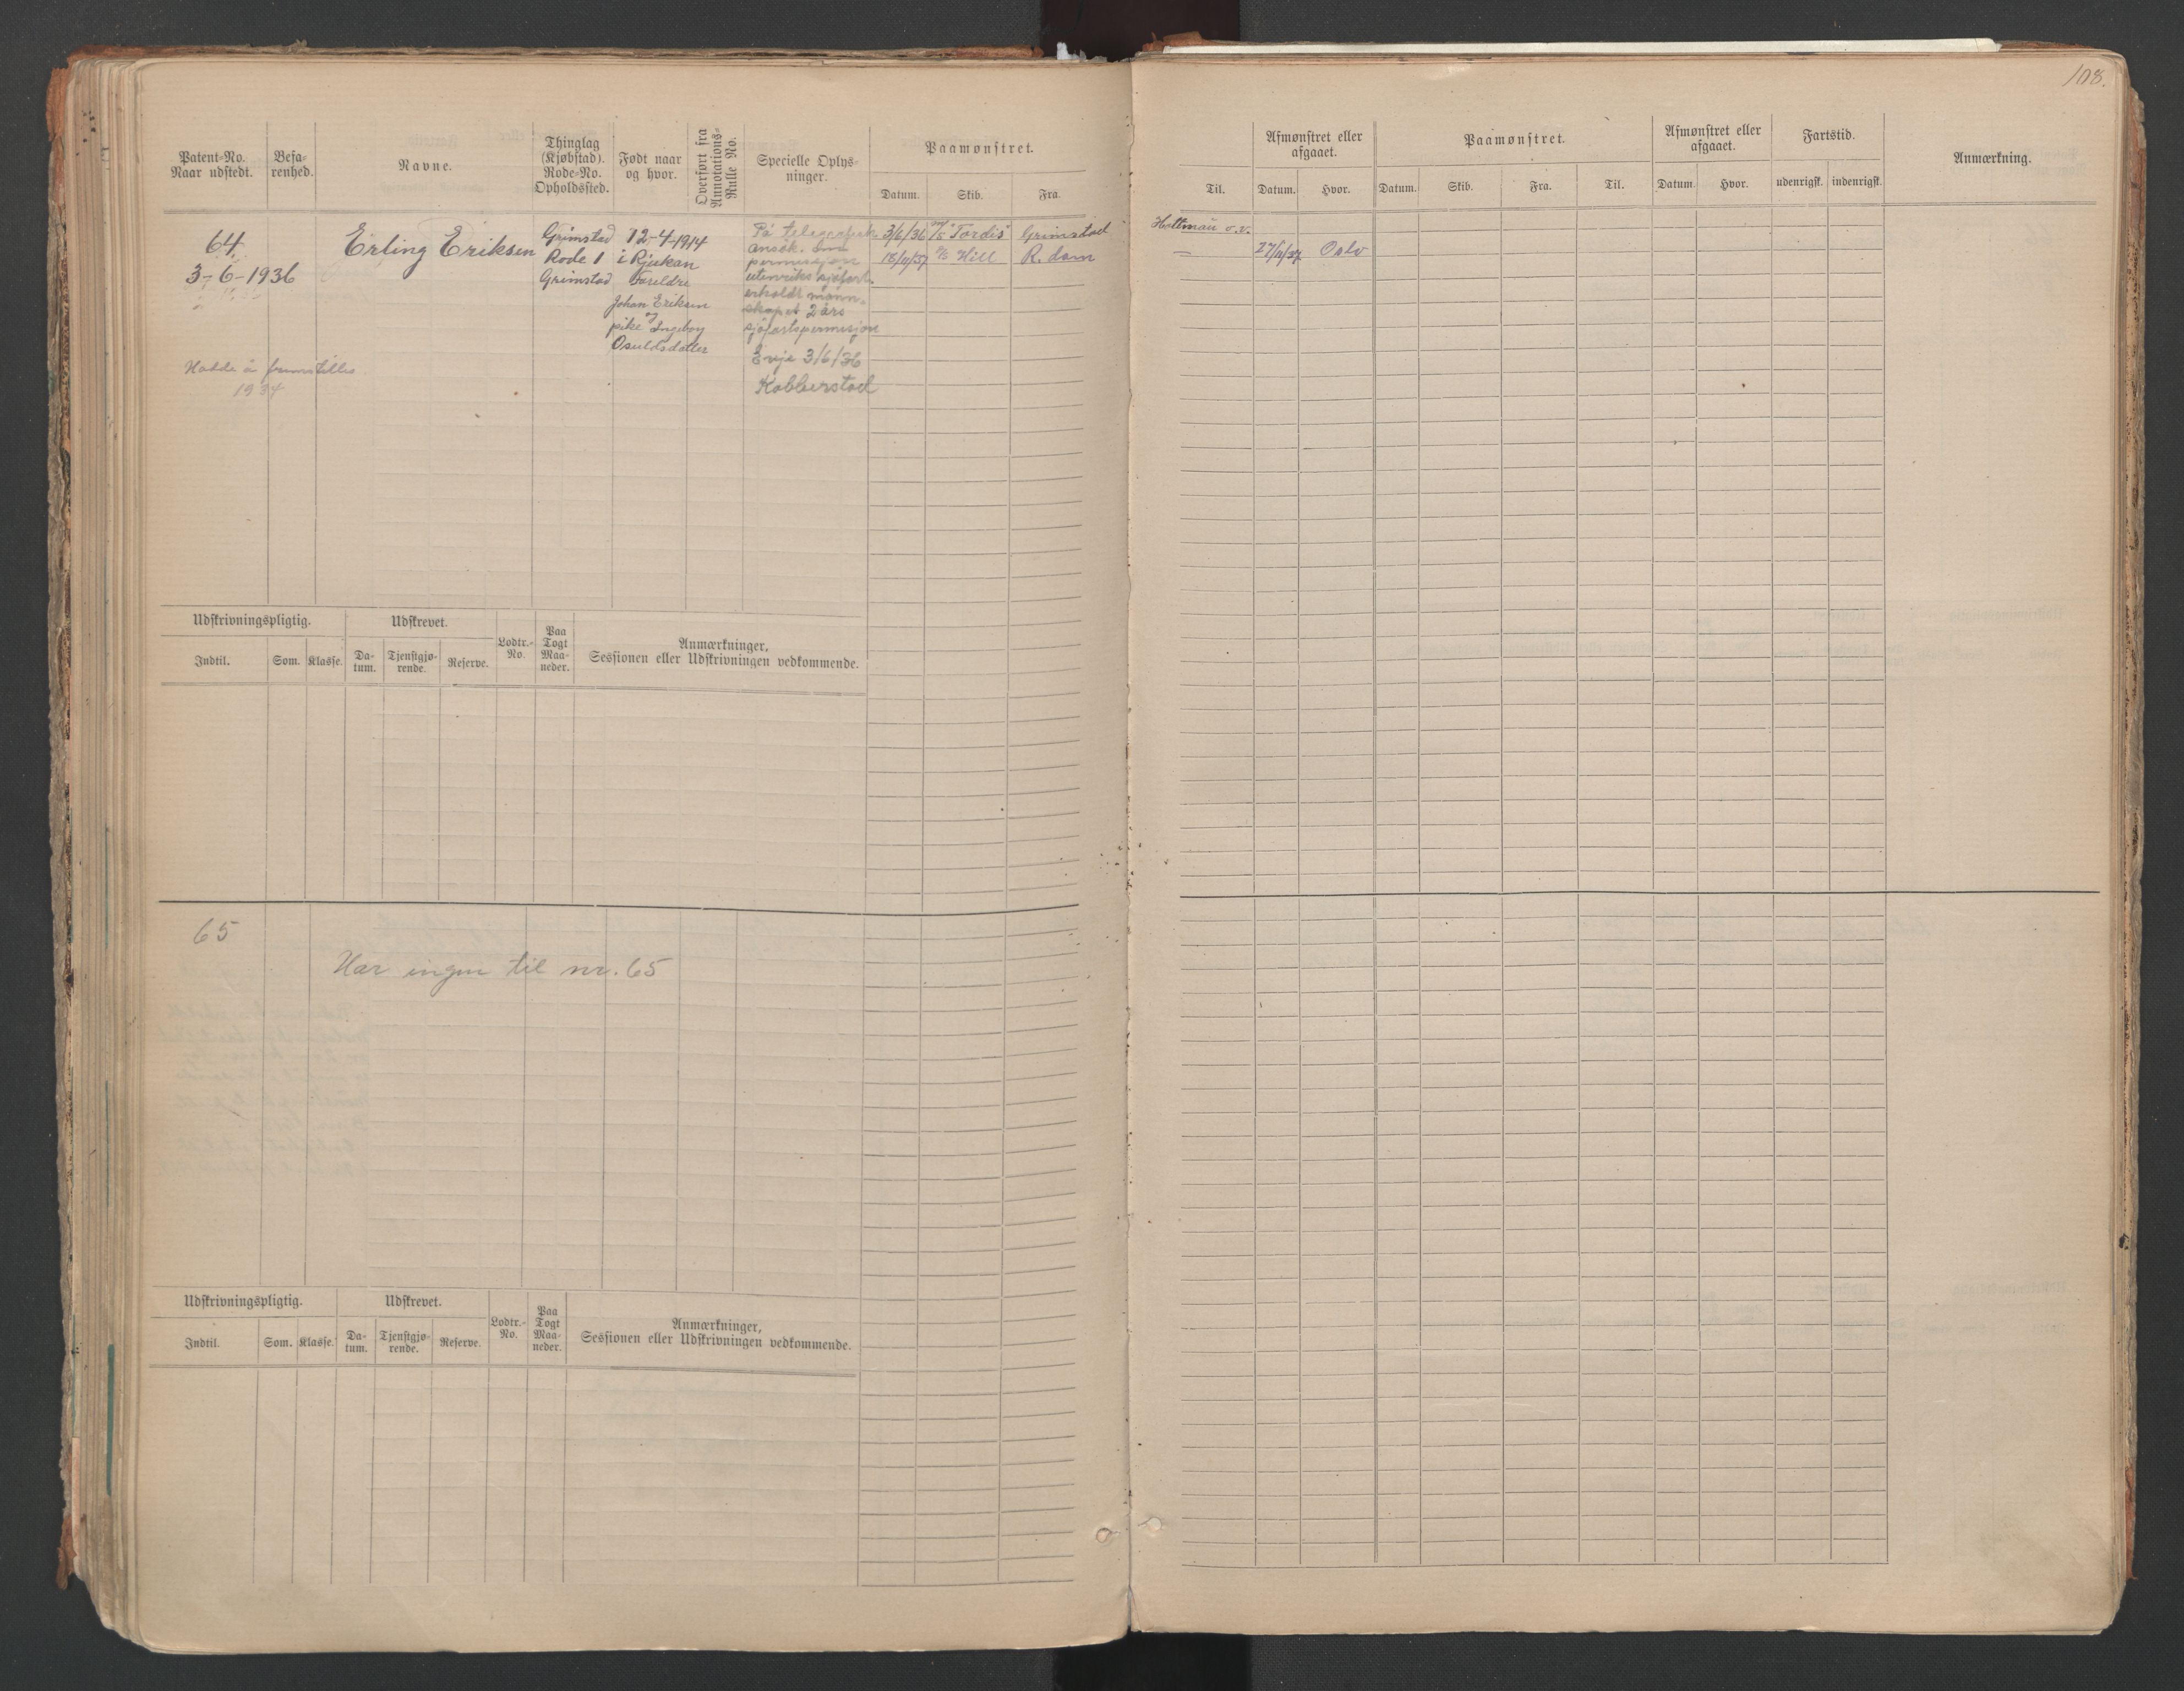 108.
Patent-No.
Naar udstedt.
Befa-
renhed.
Navne.
Thinglag
(Kjøbstad).
Rode-No.
Opholdssted.
Født naar
og hvor.
Overført fra
Annotations-
Rulle No.
Specielle Oplys-
ninger.
Paamønstret.
Datum.
Skib.
Fra.
Til.
Afmønstret eller
afgaaet.
Datum.
Hvor.
Paamønstret.
Datum.
Skib.
Fra.
Til.
Afmønstret eller
afgaaet.
Datum.
Hvor.
Fartstid.
udenrigsk.
indenrigsk.
Anmærkning.
64.
3-6-1936
Hadde å fremstilles
1934
Erling Eriksen
Grimstad
Rode 1
Grimstad
12-4-1914
i Rjukan
Foreldre
Johan Eriksen
og
pike Ingeborg
Osuldsdatter
På telegrafisk
ansøk. om
permisjon
utenriks sjøfart.
erholdt mann-
skapet 2 års
sjøfartspermisjon
Evje 3/6/36
Kobberstad
3/6/36 M/S "Tordis" Grimstad
18/11/37 D/S Hill R.dam
— 27/11/37 Oslo
Udskrivningspligtig.
Indtil.
Som.
Klasse.
Udskrevet.
Da-
tum.
Tjenstgjø-
rende.
Reserve.
Lodtr.-
No.
Paa
Togt
Maa-
neder.
Anmærkninger,
Sessionen eller Udskrivningen vedkommende.
65
Har ingen til nr. 65
Udskrivningspligtig.
Indtil.
Som.
Klasse.
Udskrevet.
Da-
tum.
Tjenstgjø-
rende.
Reserve.
Lodtr.-
No.
Paa
Togt
Maa-
neder.
Anmærkninger,
Sessionen eller Udskrivningen vedkommende.